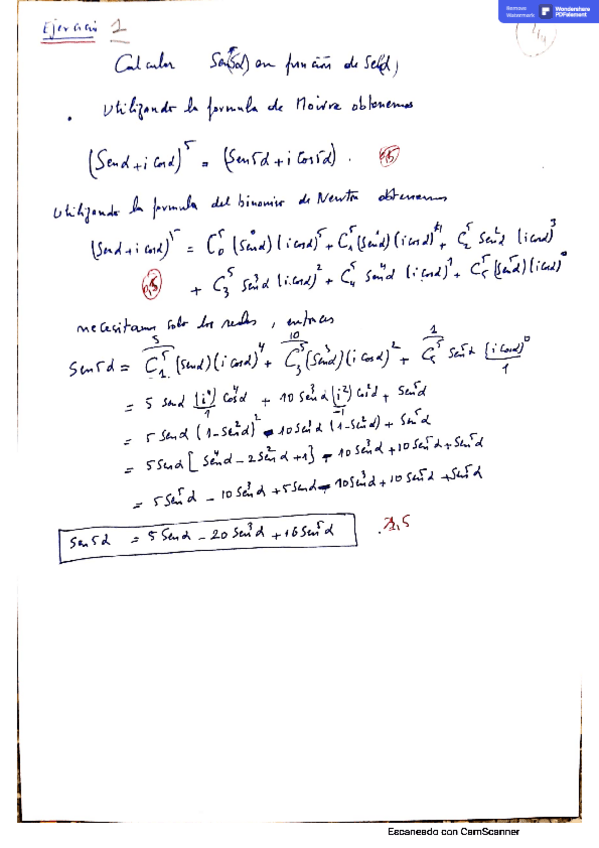 Remove Watermark
Wondershare PDFelement
Ejercicio 1
Calcular Sen(5α) en función de Sen(α),
• Utilizando la formula de Moivre obtenemos
(Senα + i Cosα)^5 = (Sen5α + i Cos5α). 0,5
Utilizando la formula del binomio de Newton obtenemos
(Senα + i cosα)^5 = C_0^5 (Senα)^0 (i cosα)^5 + C_1^5 (Senα)^1 (i cosα)^4 + C_2^5 Sen^2α (i cosα)^3
0,5 + C_3^5 Sen^3α (i cosα)^2 + C_4^5 Sen^4α (i cosα)^1 + C_5^5 (Sen^5α)(i cosα)^0
necesitamos solo los reales, entonces
5 10 1
Sen5α = C_1^5 (Senα)(i cosα)^4 + C_3^5 (Sen^3α)(i cosα)^2 + C_5^5 Sen^5α (i cosα)^0
1
= 5 Senα (i^4) Cos^4α + 10 Sen^3α (i^2) Cos^2α + Sen^5α
1 -1
= 5 Senα (1-Sen^2α)^2 - 10 Sen^3α (1-Sen^2α) + Sen^5α
= 5 Senα [Sen^4α - 2Sen^2α + 1] - 10 Sen^3α + 10 Sen^5α + Sen^5α
= 5 Sen^5α - 10 Sen^3α + 5 Senα - 10 Sen^3α + 10 Sen^5α + Sen^5α
Sen5α = 5 Senα - 20 Sen^3α + 16 Sen^5α
Escaneado con CamScanner